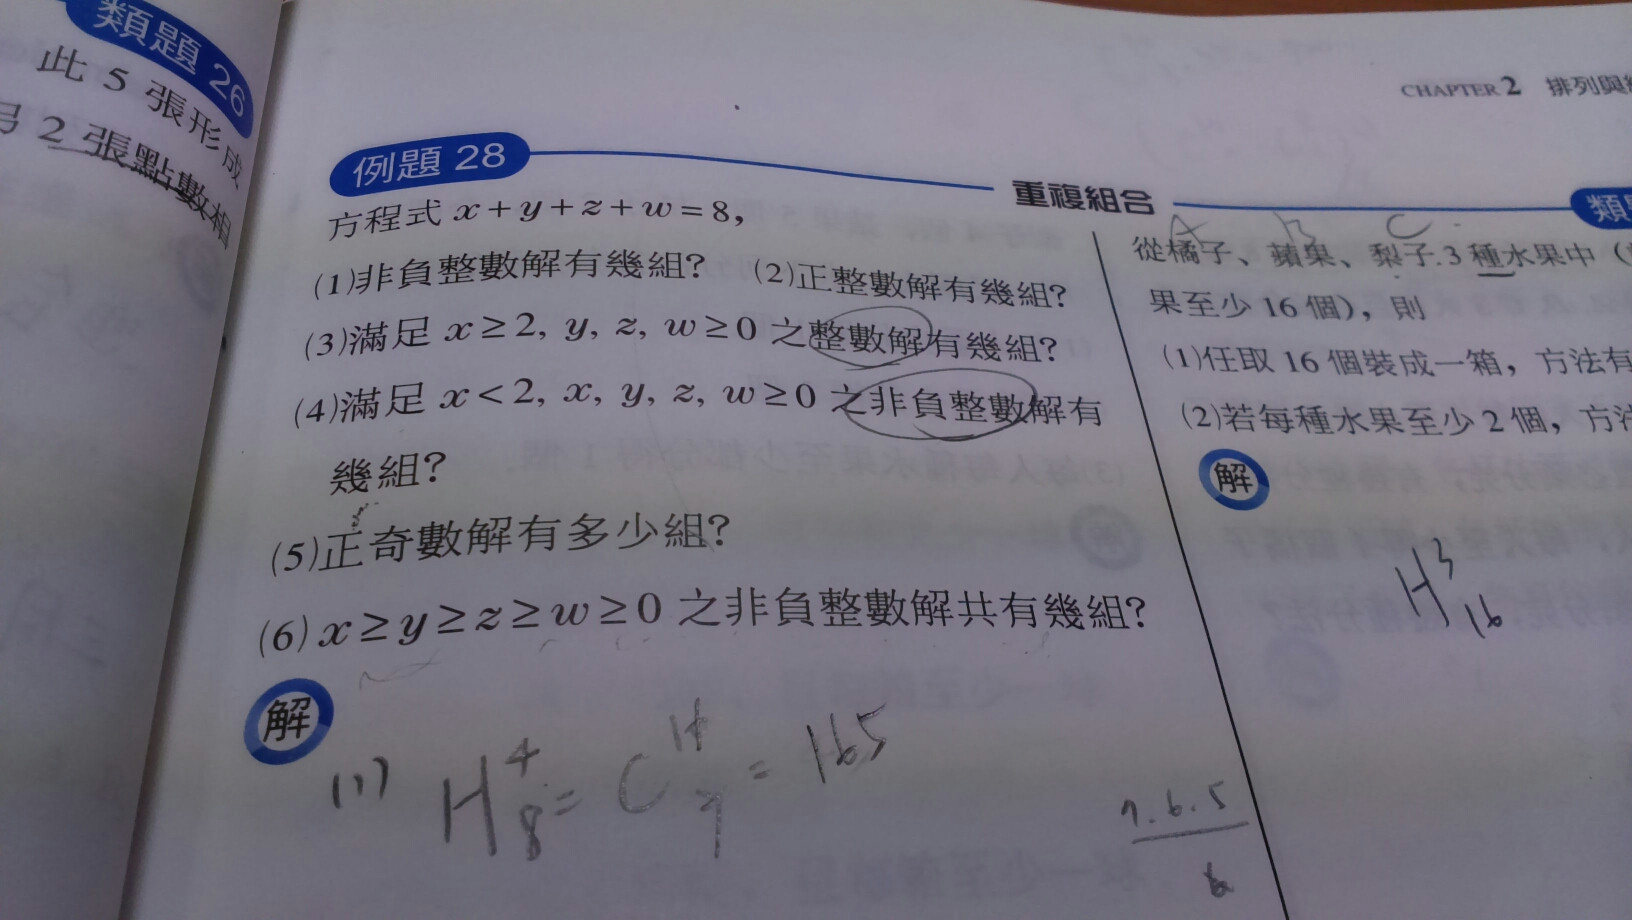 類題 26
此 5 張形成
另 2 張點數相
CHAPTER 2 排列與
例題 28
重複組合
方程式 x+y+z+w=8,
(1)非負整數解有幾組? (2)正整數解有幾組?
(3)滿足 x≥2, y, z, w≥0 之整數解有幾組?
(4)滿足 x<2, x, y, z, w≥0 之非負整數解有
幾組?
(5)正奇數解有多少組?
(6) x≥y≥z≥w≥0 之非負整數解共有幾組?
解
(1) H⁴₈ = C = 165
7.6.5
6
類
A B C
從橘子、蘋果、梨子.3 種水果中(
果至少 16 個),則
(1)任取 16 個裝成一箱,方法有
(2)若每種水果至少 2 個,方法
解
H³₁₆